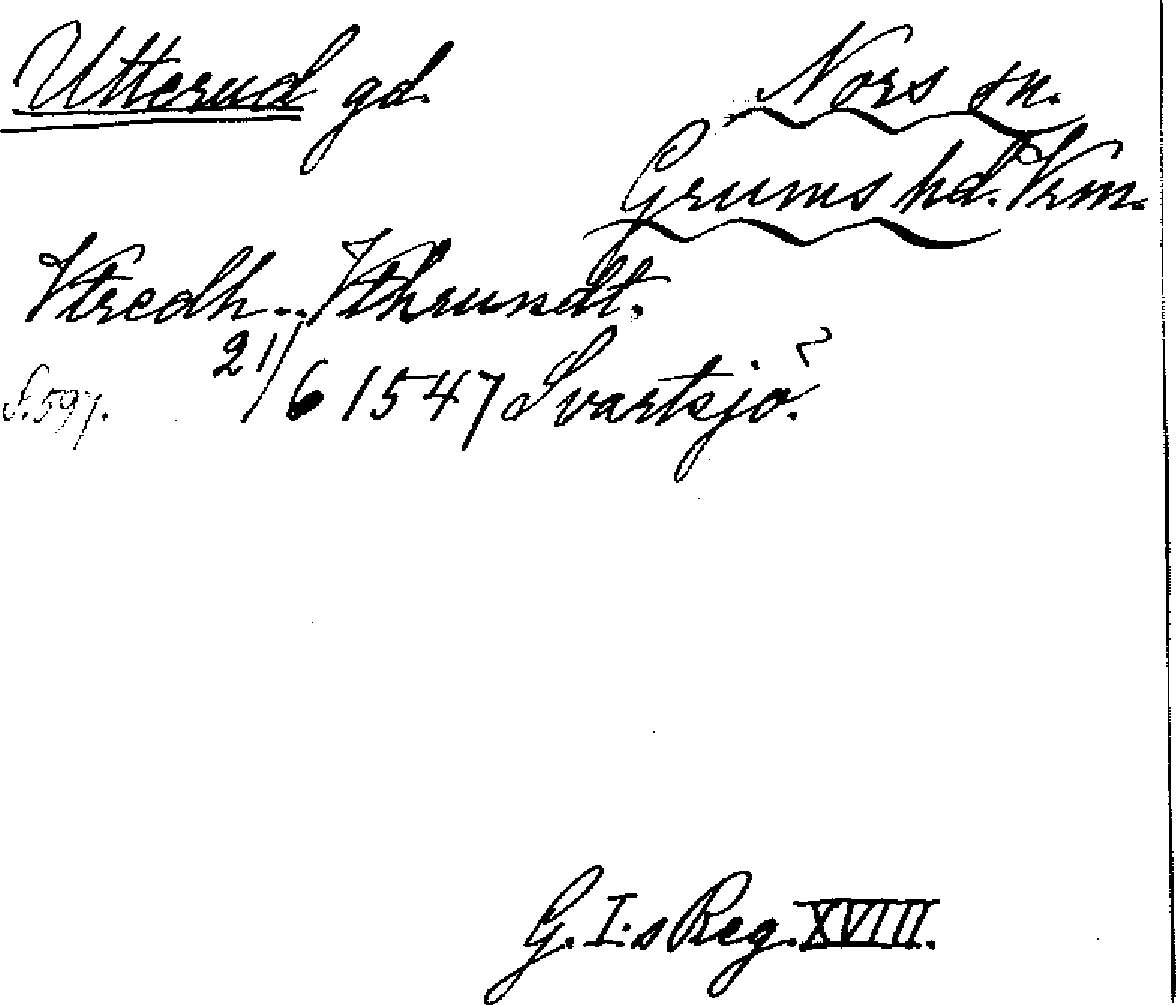 Utterud gd. Nors sn.
Grums hd. Vrm.
Vtredh .. Vthrundt.
21/6 1547 Svartsjö.
S. 597.
G. I:s Reg. XVIII.